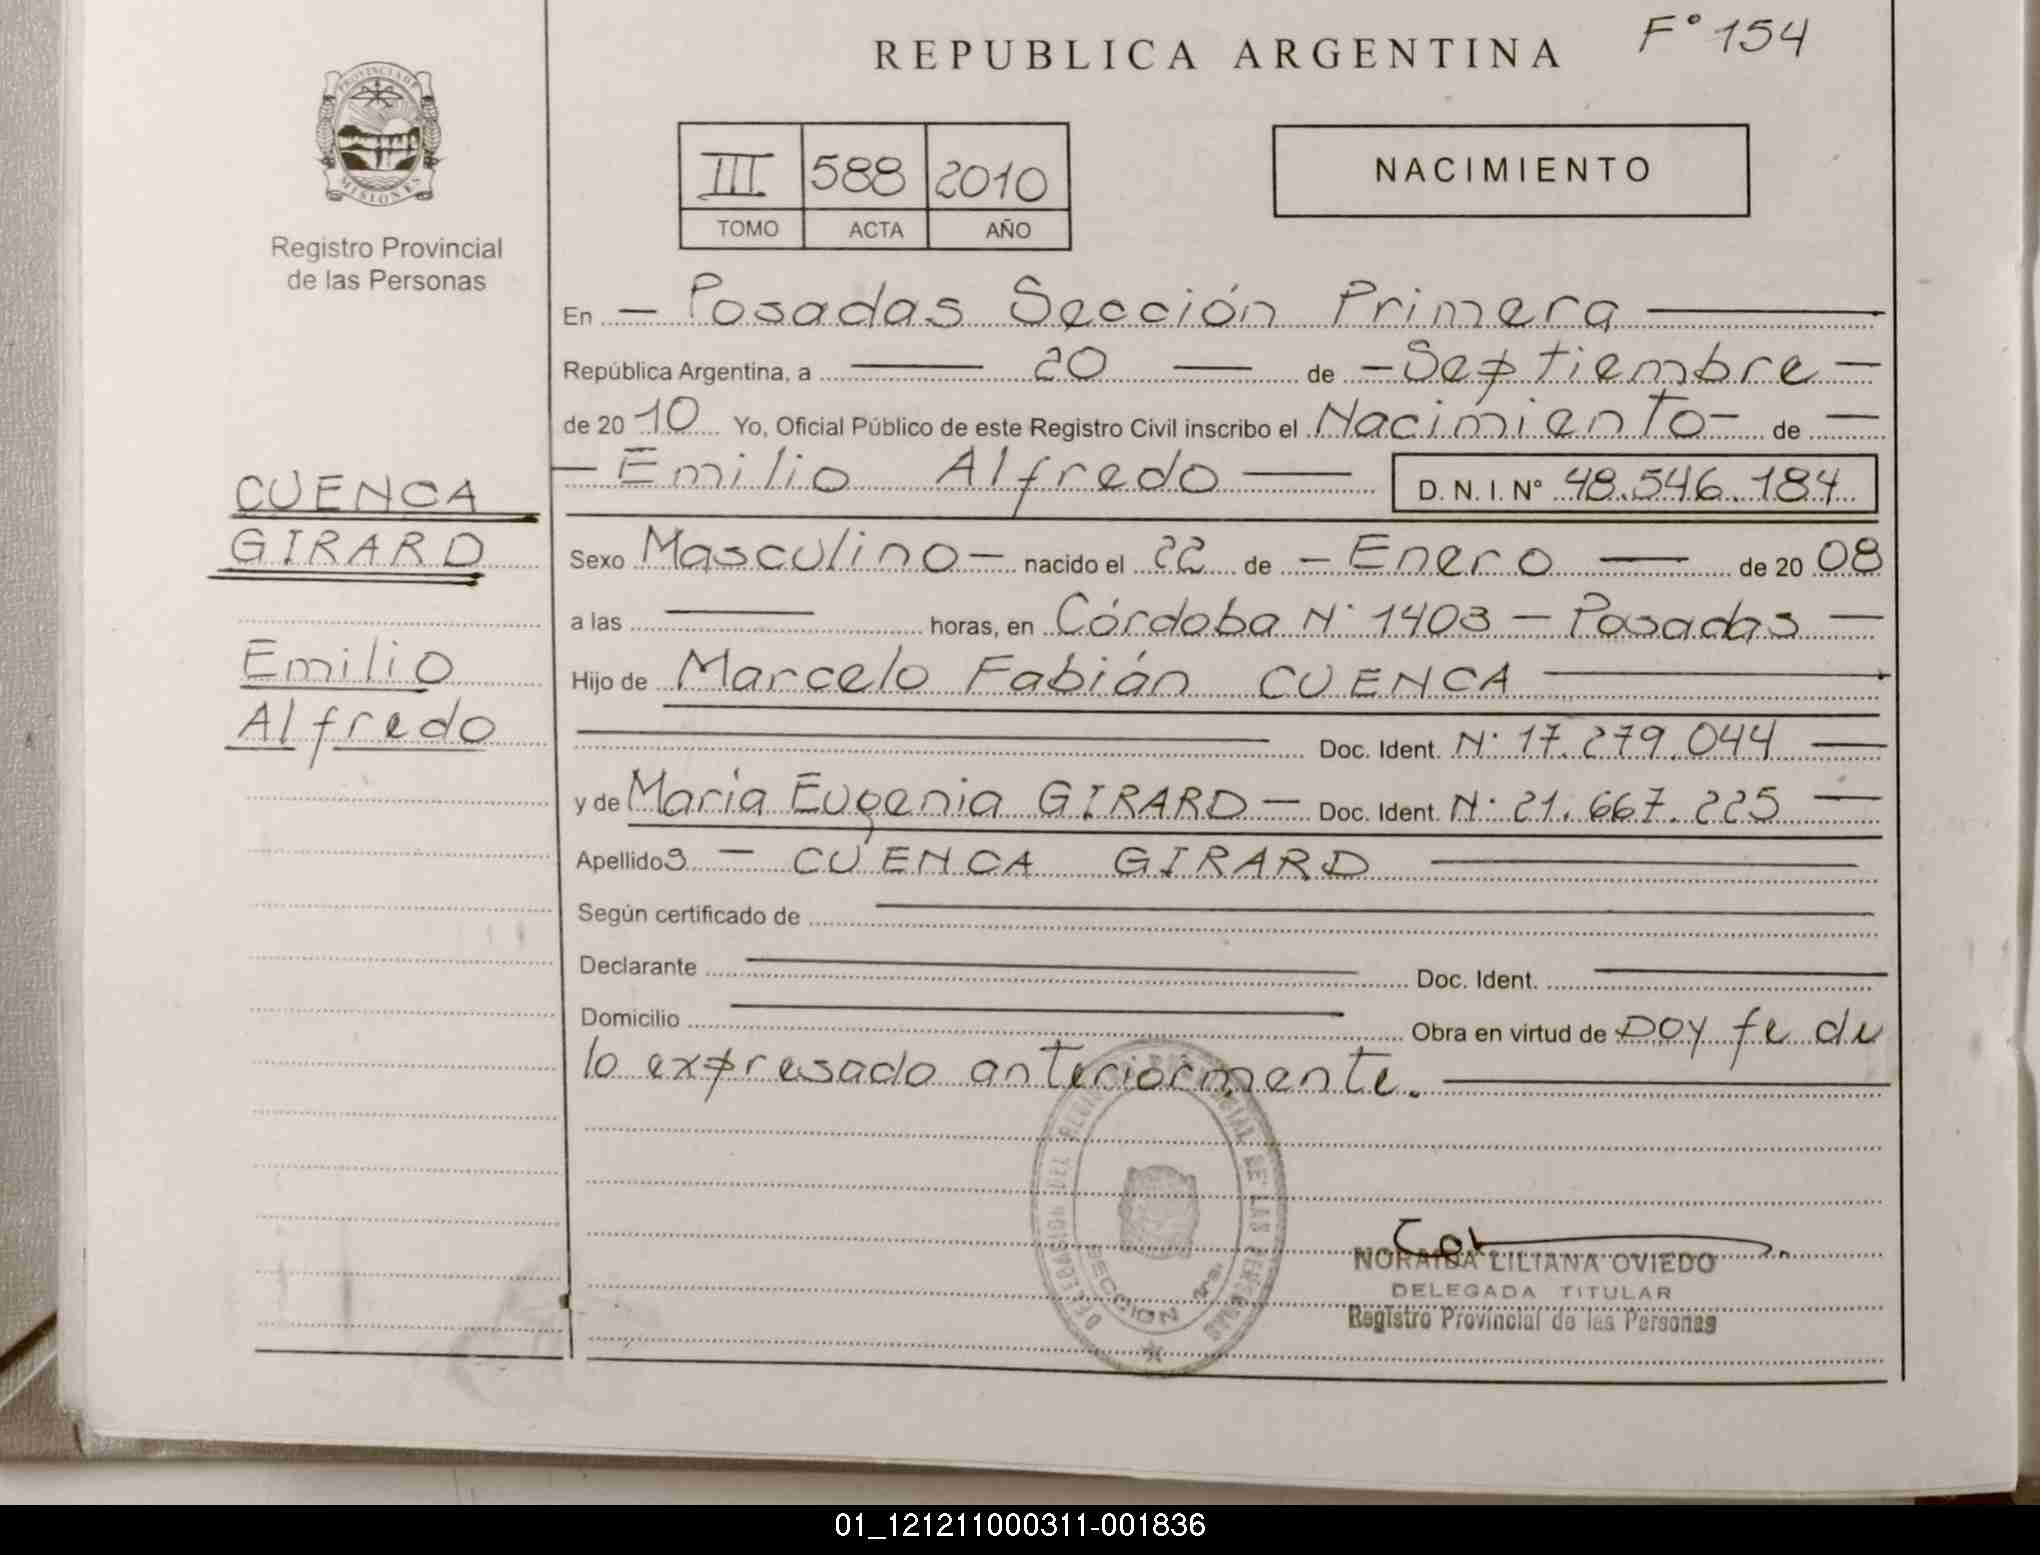 REPUBLICA ARGENTINA
F° 154
PROVINCIA DE
MISIONES
Registro Provincial
de las Personas
III 588 2010
TOMO ACTA AÑO
NACIMIENTO
En — Posadas Sección Primera —
República Argentina, a — 20 — de — Septiembre —
de 2010 Yo, Oficial Público de este Registro Civil inscribo el Nacimiento — de —
— Emilio Alfredo — D. N. I. N° 48.546.184
CUENCA
GIRARD
Emilio
Alfredo
Sexo Masculino — nacido el 22 de — Enero — de 2008
a las — horas, en Córdoba N° 1403 — Posadas —
Hijo de Marcelo Fabián CUENCA —
— Doc. Ident. N° 17.279.044 —
y de María Eugenia GIRARD — Doc. Ident. N° 21.667.225 —
Apellidos — CUENCA GIRARD —
Según certificado de —
Declarante — Doc. Ident. —
Domicilio — Obra en virtud de DOY fe de
lo expresado anteriormente. —
DELEGACION DEL REGISTRO PROVINCIAL DE LAS PERSONAS
SECCION 1ra.
NORAIDA LILIANA OVIEDO
DELEGADA TITULAR
Registro Provincial de las Personas
01_121211000311-001836